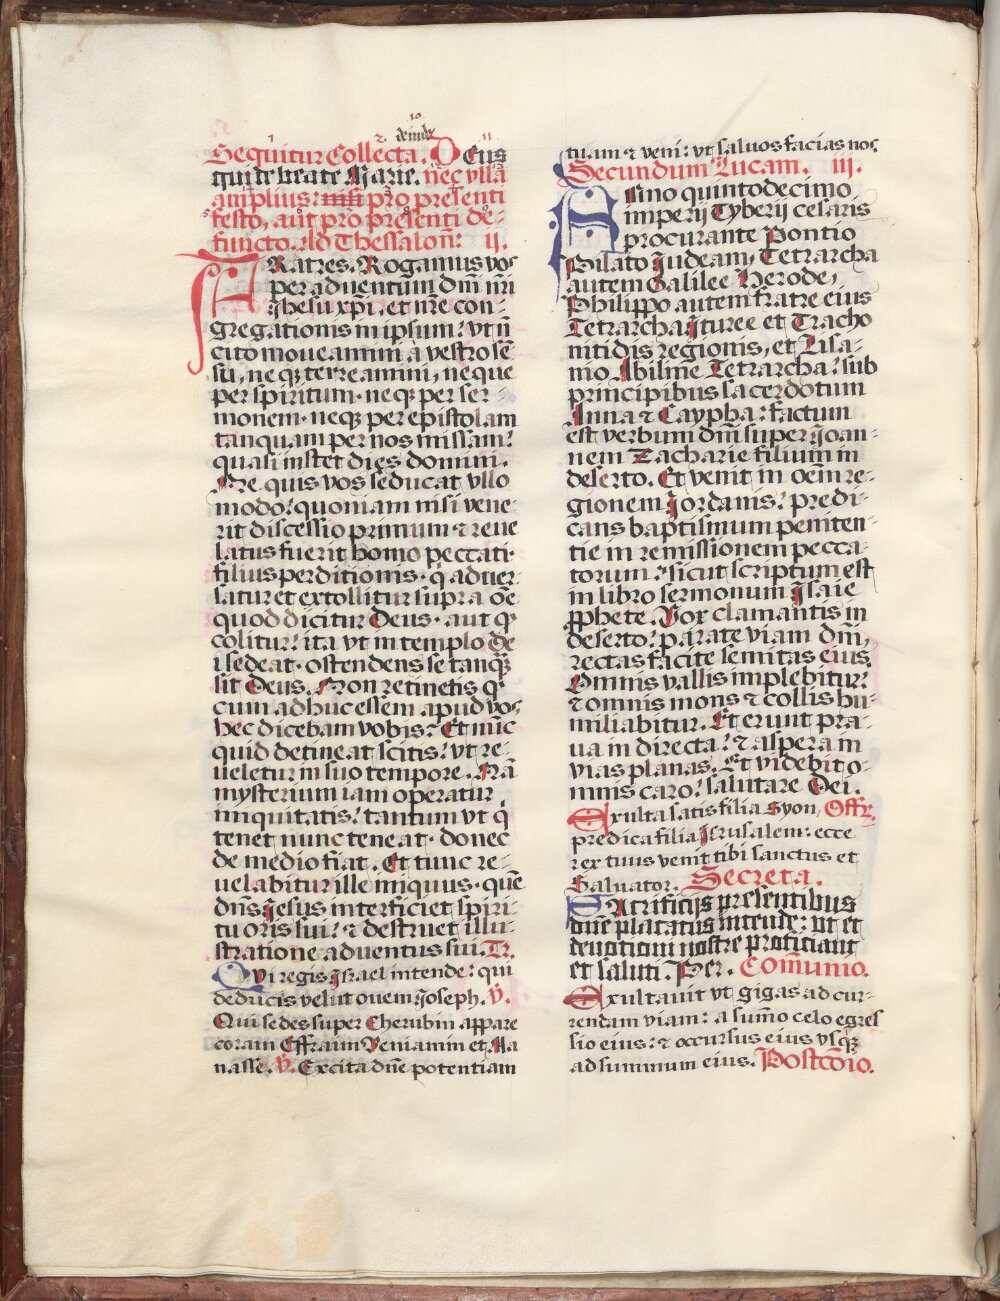 deinde
Sequitur Collecta. Deus
qui de beate Marie. nec vlla
amplius: nisi pro presenti
festo, aut pro presenti de-
functo. Ad Thessaloñ: ij.
FRatres. Rogamus vos
per aduentum dñi nri
ihesu xp̃i. et nr̃e con-
gregationis in ipsum: vt ñ
cito moueamini à vestro sẽ-
su, neqȝ terreamini, neque
per spiritum· neqȝ per ser-
monem· neqȝ per epistolam
tanquam per nos missam:
quasi instet dies domini.
Ne quis vos seducat vllo
modo: quoniam nisi vene-
rit discessio primum ⁊ reue
latus fuerit homo peccati·
filius perditionis· q̃ aduer-
satur et extollitur supra oẽ
quod dicitur Deus· aut qͥ
colitur: ita vt in templo de
i sedeat· ostendens se tanqȝ
sit Deus. Non retinetis qͥ
cum adhuc essem apud vos
hec dicebam vobis: Et nũc
quid detineat scitis: vt re-
ueletur in suo tempore. Nã
mysterium iam operatur
iniquitatis: tantum vt q̃
tenet nunc teneat· donec
de medio fiat. Et tunc re-
uelabitur ille iniquus· quẽ
dñs Jesus interficiet spiri-
tu oris sui: ⁊ destruet illu-
stratione aduentus sui. Tr.
Qui regis Jsrael intende: qui
deducis velut ouem Joseph. ỹ.
Qui sedes super Cherubin appare
coram Effraim Veniamin et Ma
nasse. ỹ. Excita dñe potentiam
tuam ⁊ veni: vt saluos facias nos.
Secundum Lucam. iij.
ANno quintodecimo
imperij Tyberij cesaris
procurante Pontio
Pilato Judeam, Tetrarcha
autem Galilee Herode,
Philippo autem fratre eius
Tetrarcha Jturee et Tracho
nitidis regionis, et Lisa-
nio Abiline Tetrarcha: sub
principibus sacerdotum
Anna ⁊ Caypha: factum
est verbum dñi super ijoan-
nem Zacharie filium in
deserto. Et venit in oẽm re-
gionem Jordanis: predi-
cans baptismum peniten-
tie in remissionem pecca-
torum: sicut scriptum est
in libro sermonum Jsaie
pphete. Vox clamantis in
deserto: parate viam dñi,
rectas facite semitas eius.
Omnis vallis implebitur:
⁊ omnis mons ⁊ collis hu-
miliabitur. Et erunt pra-
ua in directa: ⁊ aspera in
vias planas. Et videbit o-
mnis caro: salutare Dei.
Exulta satis filia Syon, Offr.
predica filia Jerusalem: ecce
rex tuus venit tibi sanctus et
Saluator. Secreta.
SAcrificijs presentibus
dñe placatus intende: ut et
deuotioni nostre proficiant
et saluti. Per. Comũnio.
Exultauit vt gigas ad cur-
rendam viam: a sum̃o celo egres
sio eius: ⁊ occursus eius vsqȝ
ad summum eius. Postcõio.